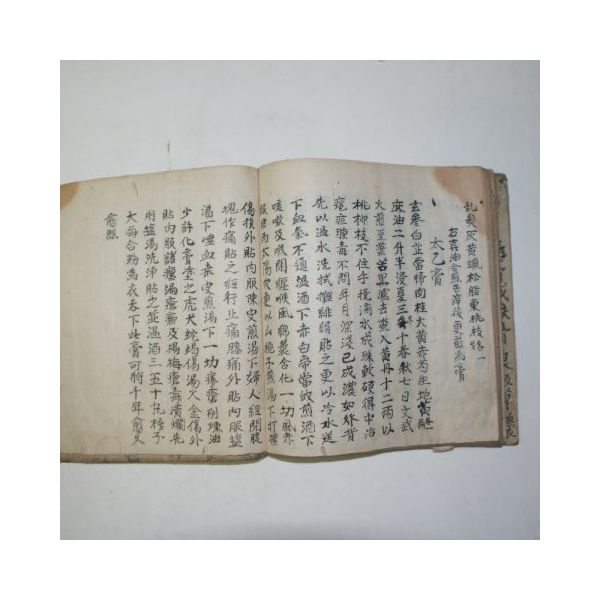 乱髮灰黃蠟松脂東桃枝
右眞油合煎去滓後更煎爲膏
太乙膏
玄參白芷當帰肉桂大黃赤芍生地黃
麻油二升半浸夏三冬十春秋七日文武
火煎至藥苦黑濾去渣入黃丹十二兩以
桃柳枝不住手攪滴水成珠軟硬得中治
瘡疽腫毒不問年月深淺已成濃
先以溫水洗拭攤緋絹貼之更以冷水送
下血氣不通溫酒下赤白帶當歸煎酒下
咳嗽及喉閉纏喉風綿裹含化一切風赤
眼貼兩太陽穴更以山梔子煎湯下打撲
傷損外貼內服陳皮煎湯下婦人經閉腹
塊作痛貼之經行止痛腰膝痛外貼內服鹽
湯下唾血桒皮煎湯下一切瘰癧別煉油
少許化膏塗之虎犬蛇蝎傷湯火金傷外
貼內服諸瘡瘍癤及楊梅瘡毒潰爛先
用鹽湯洗淨貼之並溫酒三五十丸梧子
大每蛤粉爲衣吞下此膏可將千年愈久
愈烈